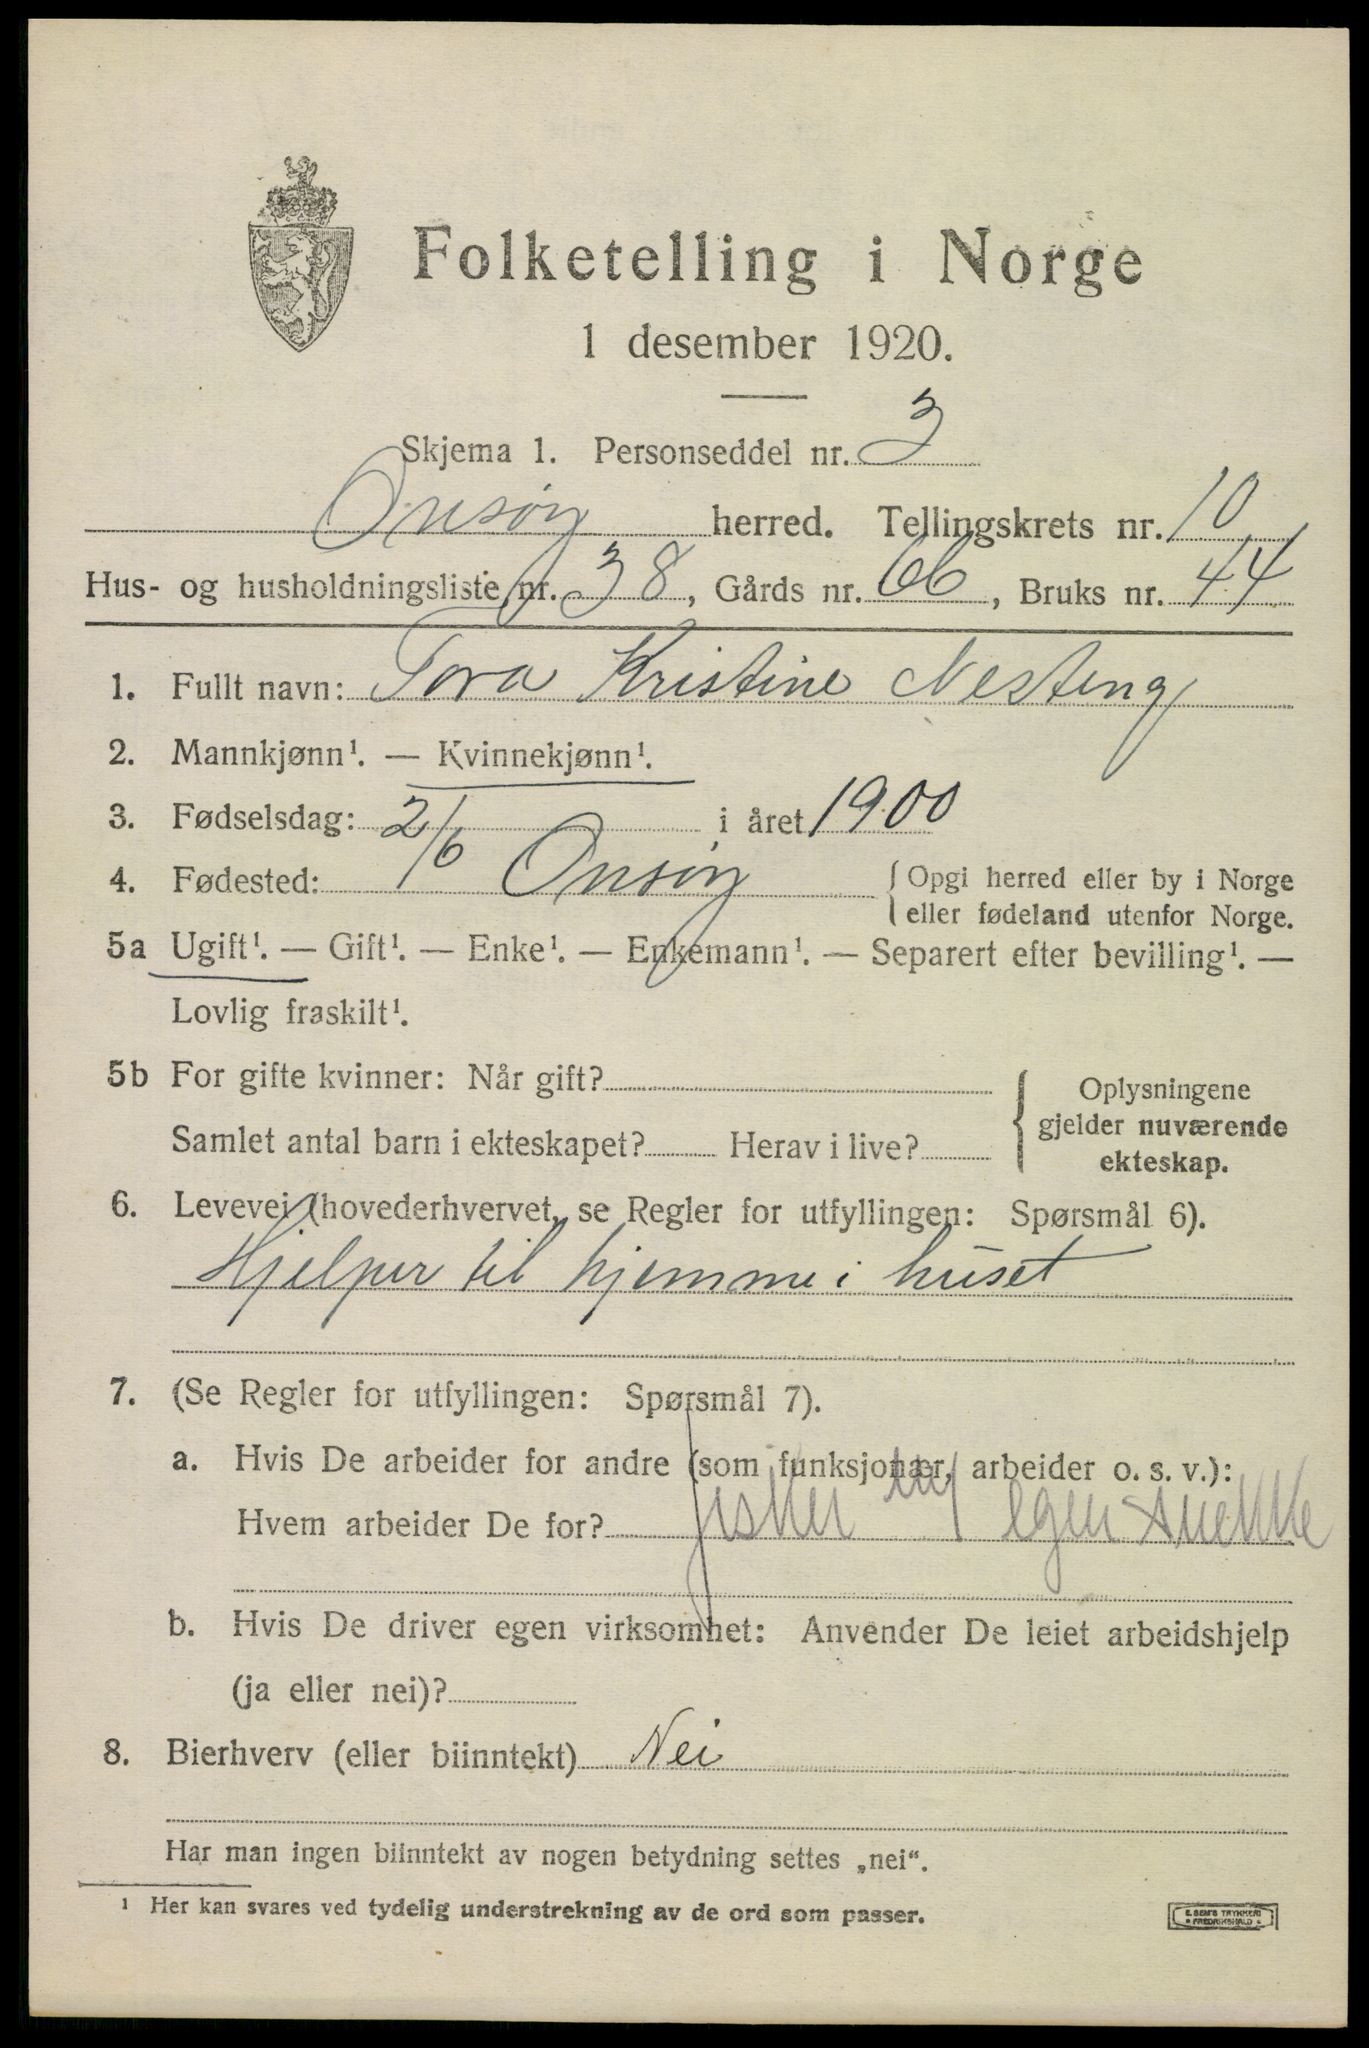 Folketelling i Norge
1 desember 1920.
Skjema 1. Personseddel nr. 3
Onsøy herred. Tellingskrets nr. 10
Hus- og husholdningsliste nr. 38, Gårds nr. 66, Bruks nr. 44
1. Fullt navn: Tora Kristine Nesteng
2. Mannkjønn¹. — Kvinnekjønn¹.
3. Fødselsdag: 2/6 i året 1900
4. Fødested: Onsøy {Opgi herred eller by i Norge
eller fødeland utenfor Norge.
5a Ugift¹. — Gift¹. — Enke¹. — Enkemann¹. — Separert efter bevilling¹. —
Lovlig fraskilt¹.
5b For gifte kvinner: Når gift?
Samlet antal barn i ekteskapet? Herav i live?
{Oplysningene
gjelder nuværende
ekteskap.
6. Levevei (hovederhvervet, se Regler for utfyllingen: Spørsmål 6).
Hjelper til hjemme i huset
7. (Se Regler for utfyllingen: Spørsmål 7).
a. Hvis De arbeider for andre (som funksjonær, arbeider o. s. v.):
Hvem arbeider De for? fisker egen
b. Hvis De driver egen virksomhet: Anvender De leiet arbeidshjelp
(ja eller nei)?
8. Bierhverv (eller biinntekt) Nei
Har man ingen biinntekt av nogen betydning settes „nei".
¹ Her kan svares ved tydelig understrekning av de ord som passer.
E. SEM'S TRYKKERI
FREDRIKSHALD